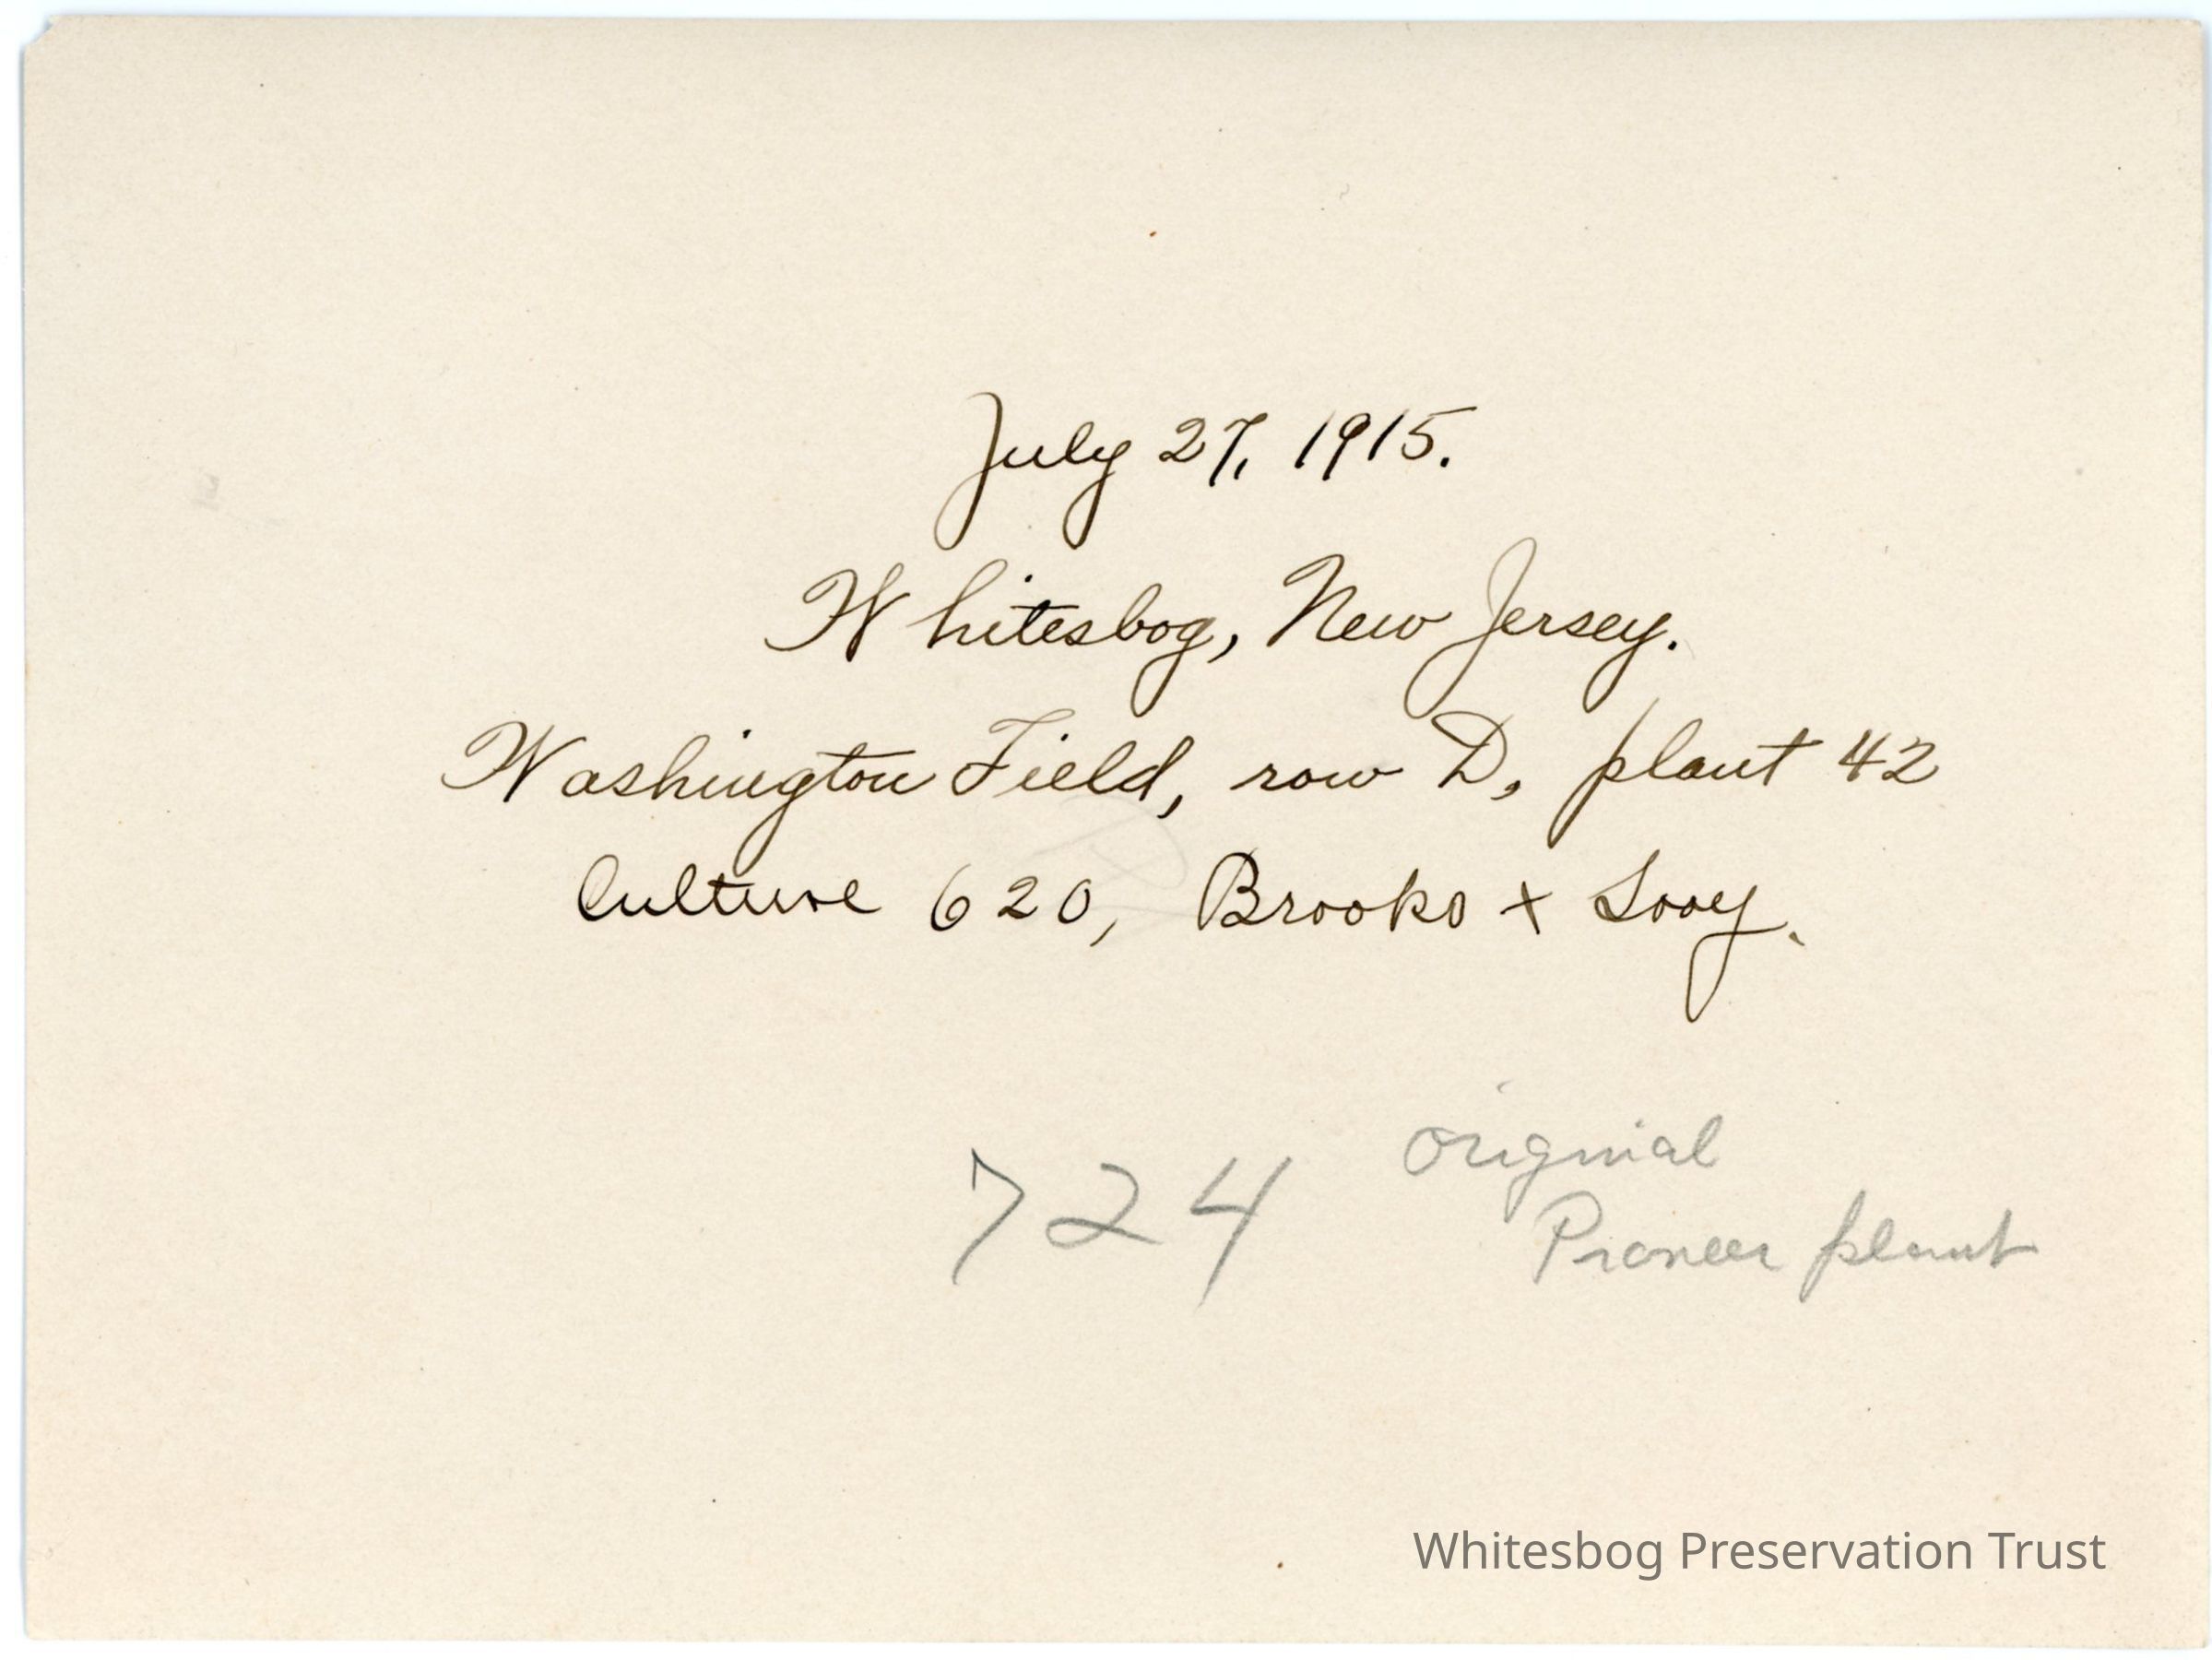 July 27, 1915.
Whitesbog, New Jersey.
Washington Field, row D, plant 42
Culture 620, Brooks x Sooy.
724 original
Pioneer plant
Whitesbog Preservation Trust